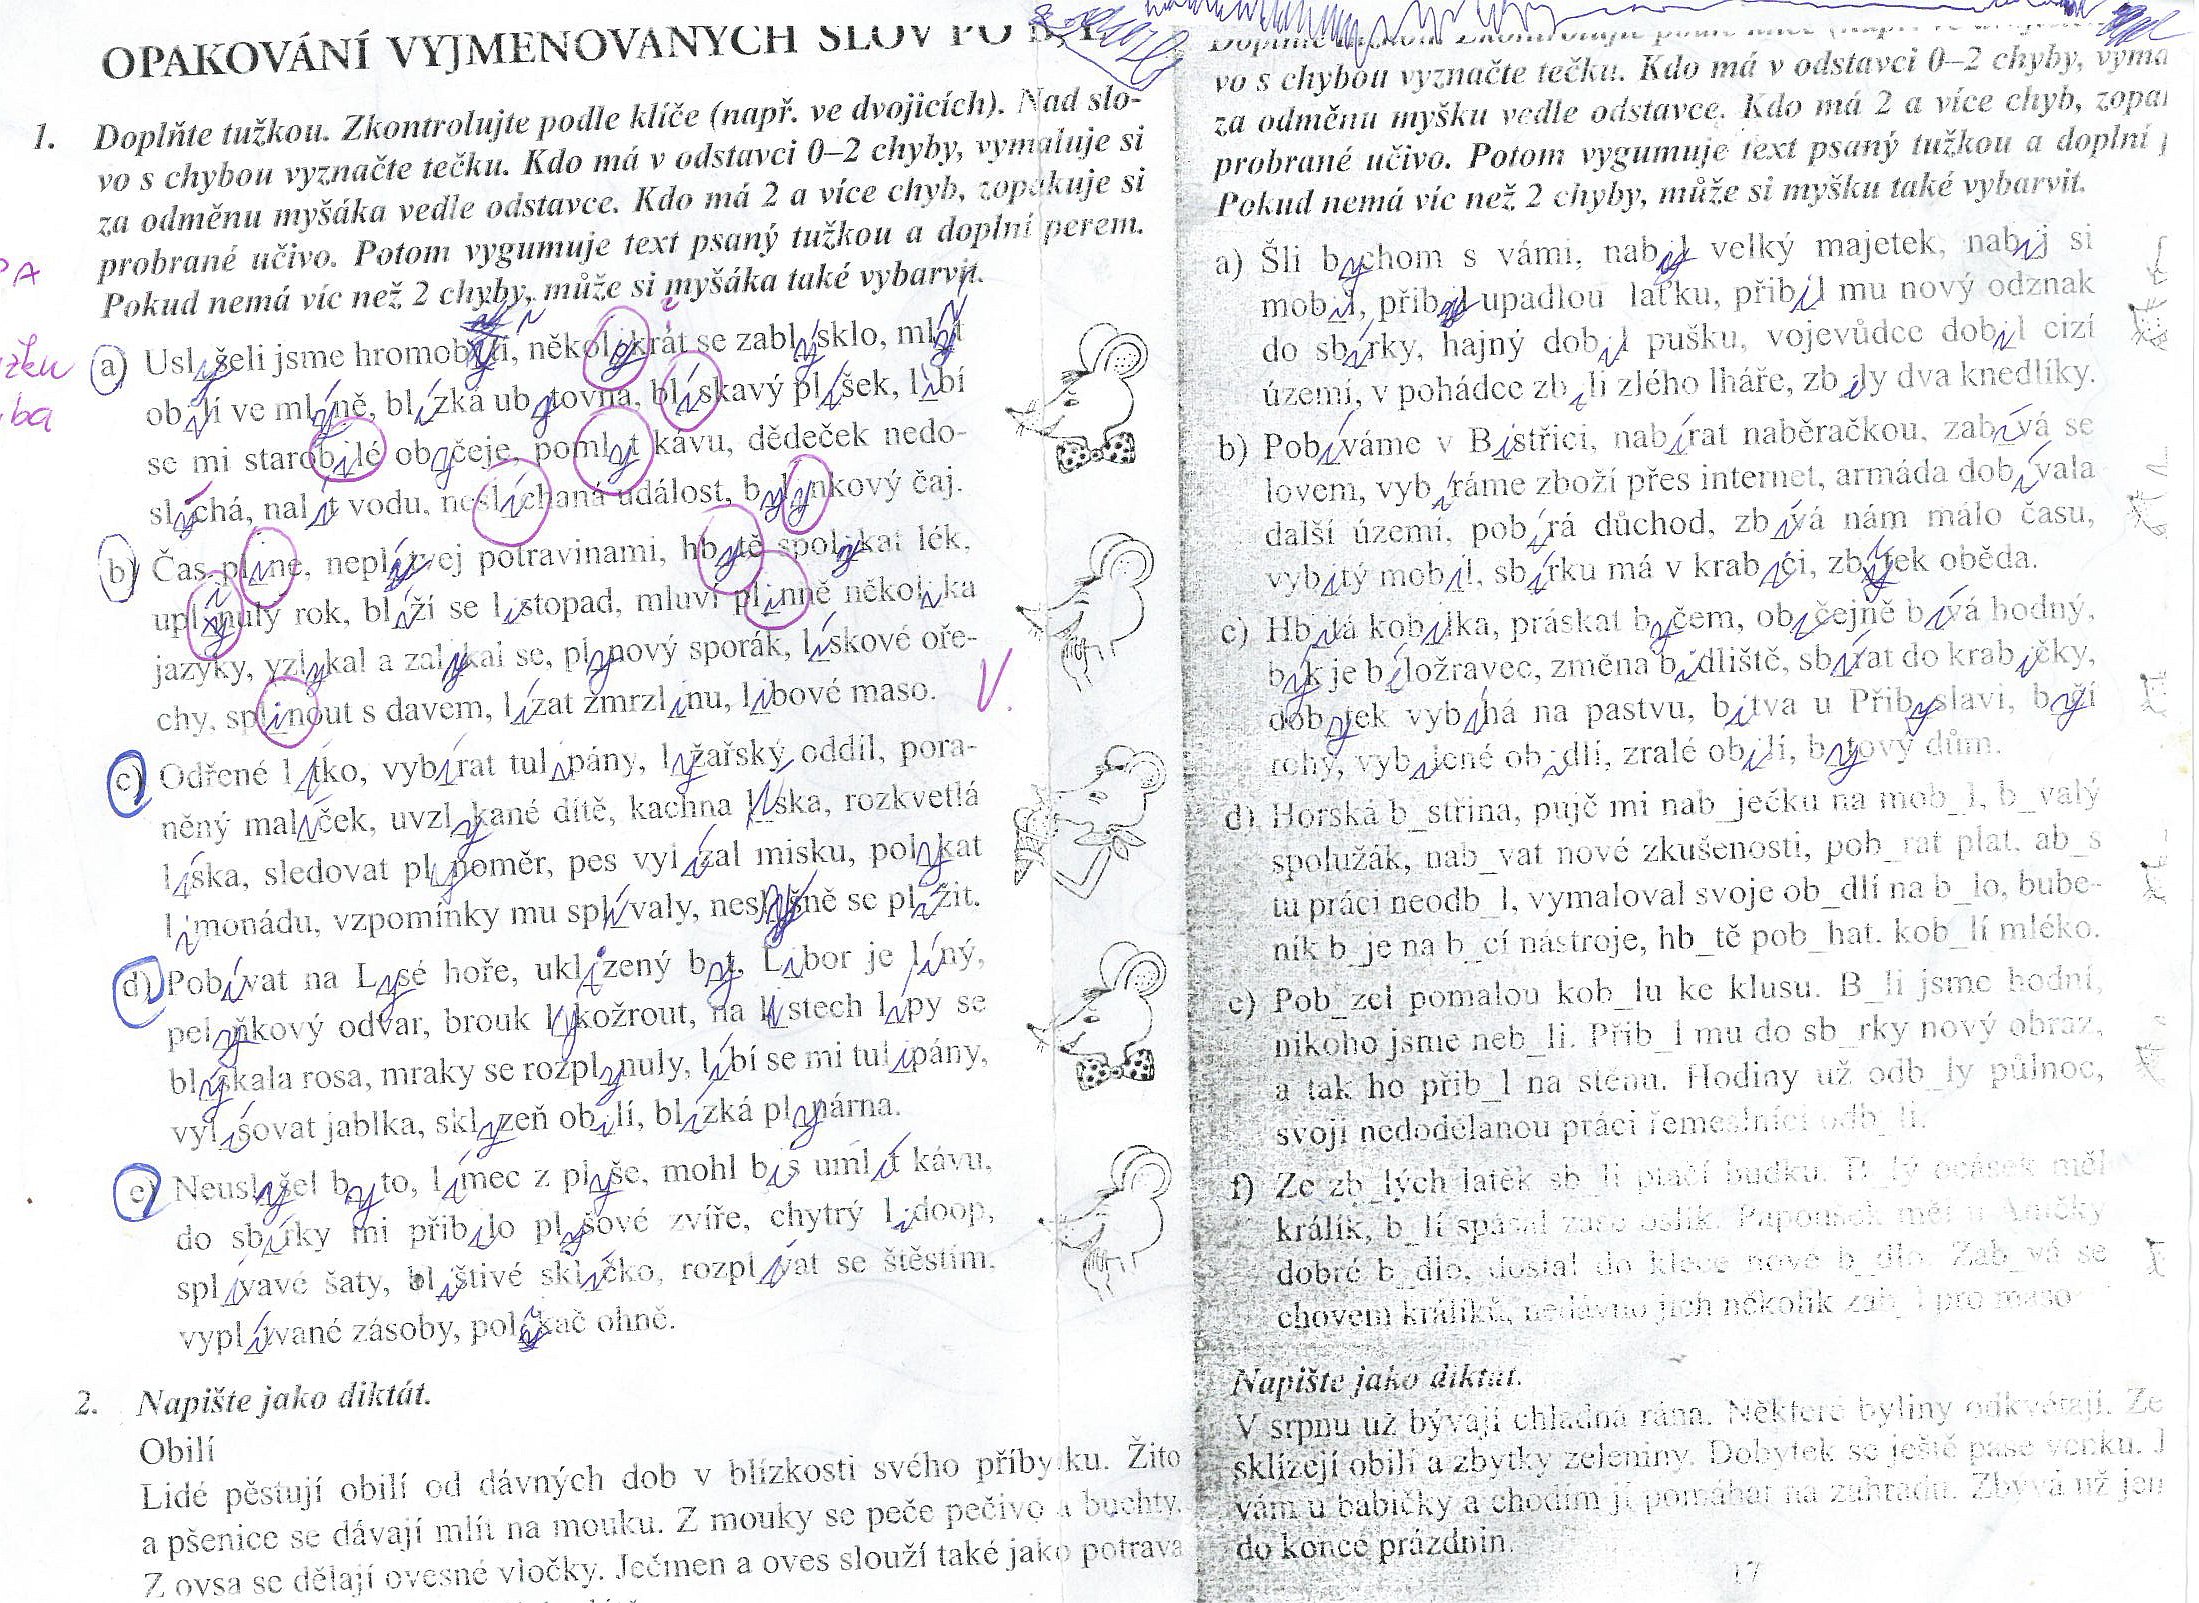 OPAKOVÁNÍ VYJMENOVANÝCH SLOV PO B, L
1. Doplňte tužkou. Zkontrolujte podle klíče (např. ve dvojicích). Nad slo-
vo s chybou vyznačte tečku. Kdo má v odstavci 0–2 chyby, vymaluje si
za odměnu myšáka vedle odstavce. Kdo má 2 a více chyb, zopakuje si
probrané učivo. Potom vygumuje text psaný tužkou a doplní perem.
Pokud nemá víc než 2 chyby, může si myšáka také vybarvit.
a) Uslyšeli jsme hromobití, několykrát se zablýsklo, mlít
obilí ve mlýně, blízká ubytovna, blískavý plíšek, líbí
se mi starobilé obyčeje, pomlyt kávu, dědeček nedo-
slýchá, nalít vodu, neslíchaná událost, bylynkový čaj.
b) Čas pline, neplýtvej potravinami, hbytě spolykal lék,
uplynulý rok, blíží se listopad, mluví plinně několika
jazyky, vzlykal a zalykal se, plynový sporák, lískové oře-
chy, splinout s davem, lízat zmrzlinu, libové maso.
c) Odřené lítko, vybírat tulipány, lyžařský oddíl, pora-
něný malíček, uvzlykané dítě, kachna líska, rozkvetlá
líska, sledovat plynoměr, pes vylízal misku, polykat
limonádu, vzpomínky mu splívaly, neslyšně se plížit.
d) Pobívat na Lysé hoře, uklizený byt, Libor je líný,
pelyňkový odvar, brouk lykožrout, na listech lípy se
blýskala rosa, mraky se rozplynuly, líbí se mi tulipány,
vylisovat jablka, sklyzeň obilí, blízká plynárna.
e) Neuslyšel byto, límec z plyše, mohl bis umlít kávu,
do sbírky mi přibilo plyšové zvíře, chytrý lidoop,
splívavé šaty, blištivé sklíčko, rozplívat se štěstím,
vyplívané zásoby, polikač ohně.
2. Napište jako diktát.
Obilí
Lidé pěstují obilí od dávných dob v blízkosti svého příbytku. Žito
a pšenice se dávají mlít na mouku. Z mouky se peče pečivo a buchty.
Z ovsa se dělají ovesné vločky. Ječmen a oves slouží také jako potrava
vo s chybou vyznačte tečku. Kdo má v odstavci 0–2 chyby, vyma
za odměnu myšku vedle odstavce. Kdo má 2 a více chyb, zopa
probrané učivo. Potom vygumuje text psaný tužkou a doplní p
Pokud nemá víc než 2 chyby, může si myšku také vybarvit.
a) Šli bychom s vámi, nabyl velký majetek, nabij si
mobil, přibil upadlou laťku, přibil mu nový odznak
do sbírky, hajný dobil pušku, vojevůdce dobil cizí
území, v pohádce zbili zlého lháře, zbily dva knedlíky.
b) Pobíváme v Bistřici, nabírat naběračkou, zabívá se
lovem, vybíráme zboží přes internet, armáda dobívala
další území, pobírá důchod, zbívá nám málo času,
vybitý mobil, sbírku má v krabici, zbytek oběda.
c) Hbitá kobilka, práskat byčem, običejně bívá hodný,
býk je biložravec, změna bidliště, sbírat do krabičky,
dobytek vybíhá na pastvu, bitva u Přibyslavi, byží
rohy, vybilené obidlí, zralé obilí, bytový dům.
d) Horská b_střina, pujč mi nab_ječku na mob_l, b_valý
spolužák, nab_vat nové zkušenosti, pob_rat plat, ab_s
tu práci neodb_l, vymaloval svoje ob_dlí na b_lo, bube-
ník b_je na b_cí nástroje, hb_tě pob_hat, kob_lí mléko.
e) Pob_zel pomalou kob_lu ke klusu. B_li jsme hodní,
nikoho jsme neb_li. Přib_l mu do sb_rky nový obraz,
a tak ho přib_l na stěnu. Hodiny už odb_ly půlnoc,
svoji nedodělanou práci řemeslníci odb_li.
f) Ze zb_lých latěk sb_li ptačí budku. B_lý ocásek měl
králík, b_lí spásal zase oslík. Papoušek měl u Aničky
dobré b_dlo, dostal do klece nové b_dlo. Zab_vá se
chovem králíků, nedávno jich několik zab_l pro maso
Napište jako diktát.
V srpnu už bývají chladná rána. Některé byliny odkvétají. Ze
sklízejí obilí a zbytky zeleniny. Dobytek se ještě pase venku. J
vám u babičky a chodím jí pomáhat na zahradu. Zbývá už jen
do konce prázdnin.
17